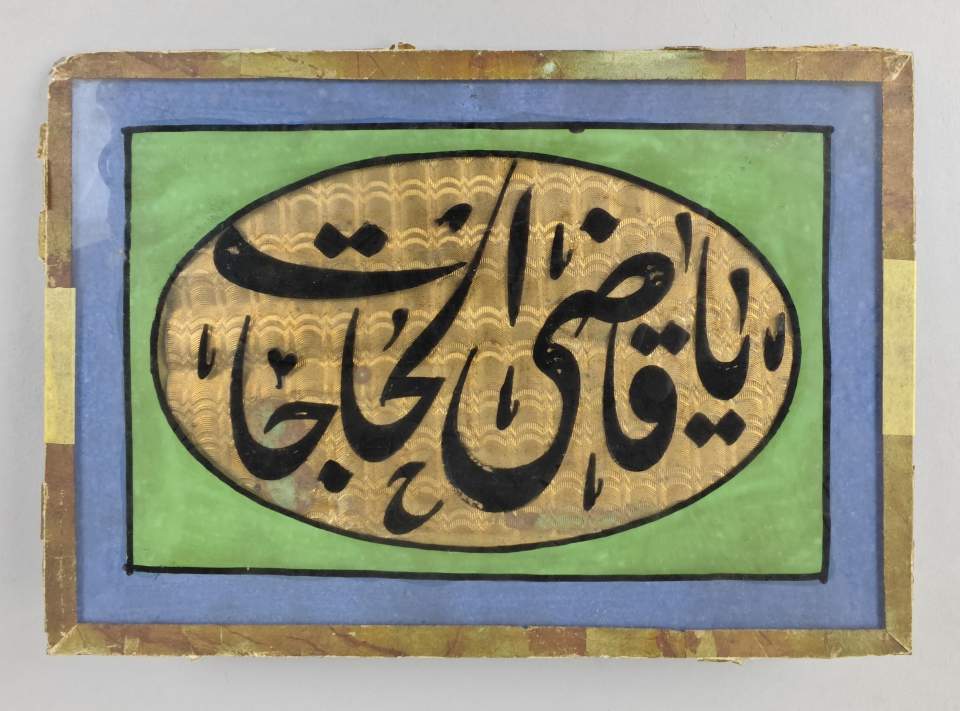 يا قاضى الحاجات